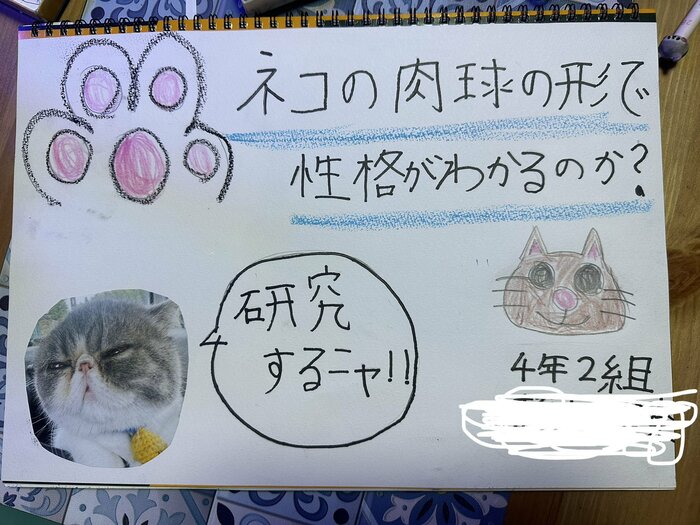 ネコの肉球の形で
性格がわかるのか?
研究
するニャ!!
4年2組